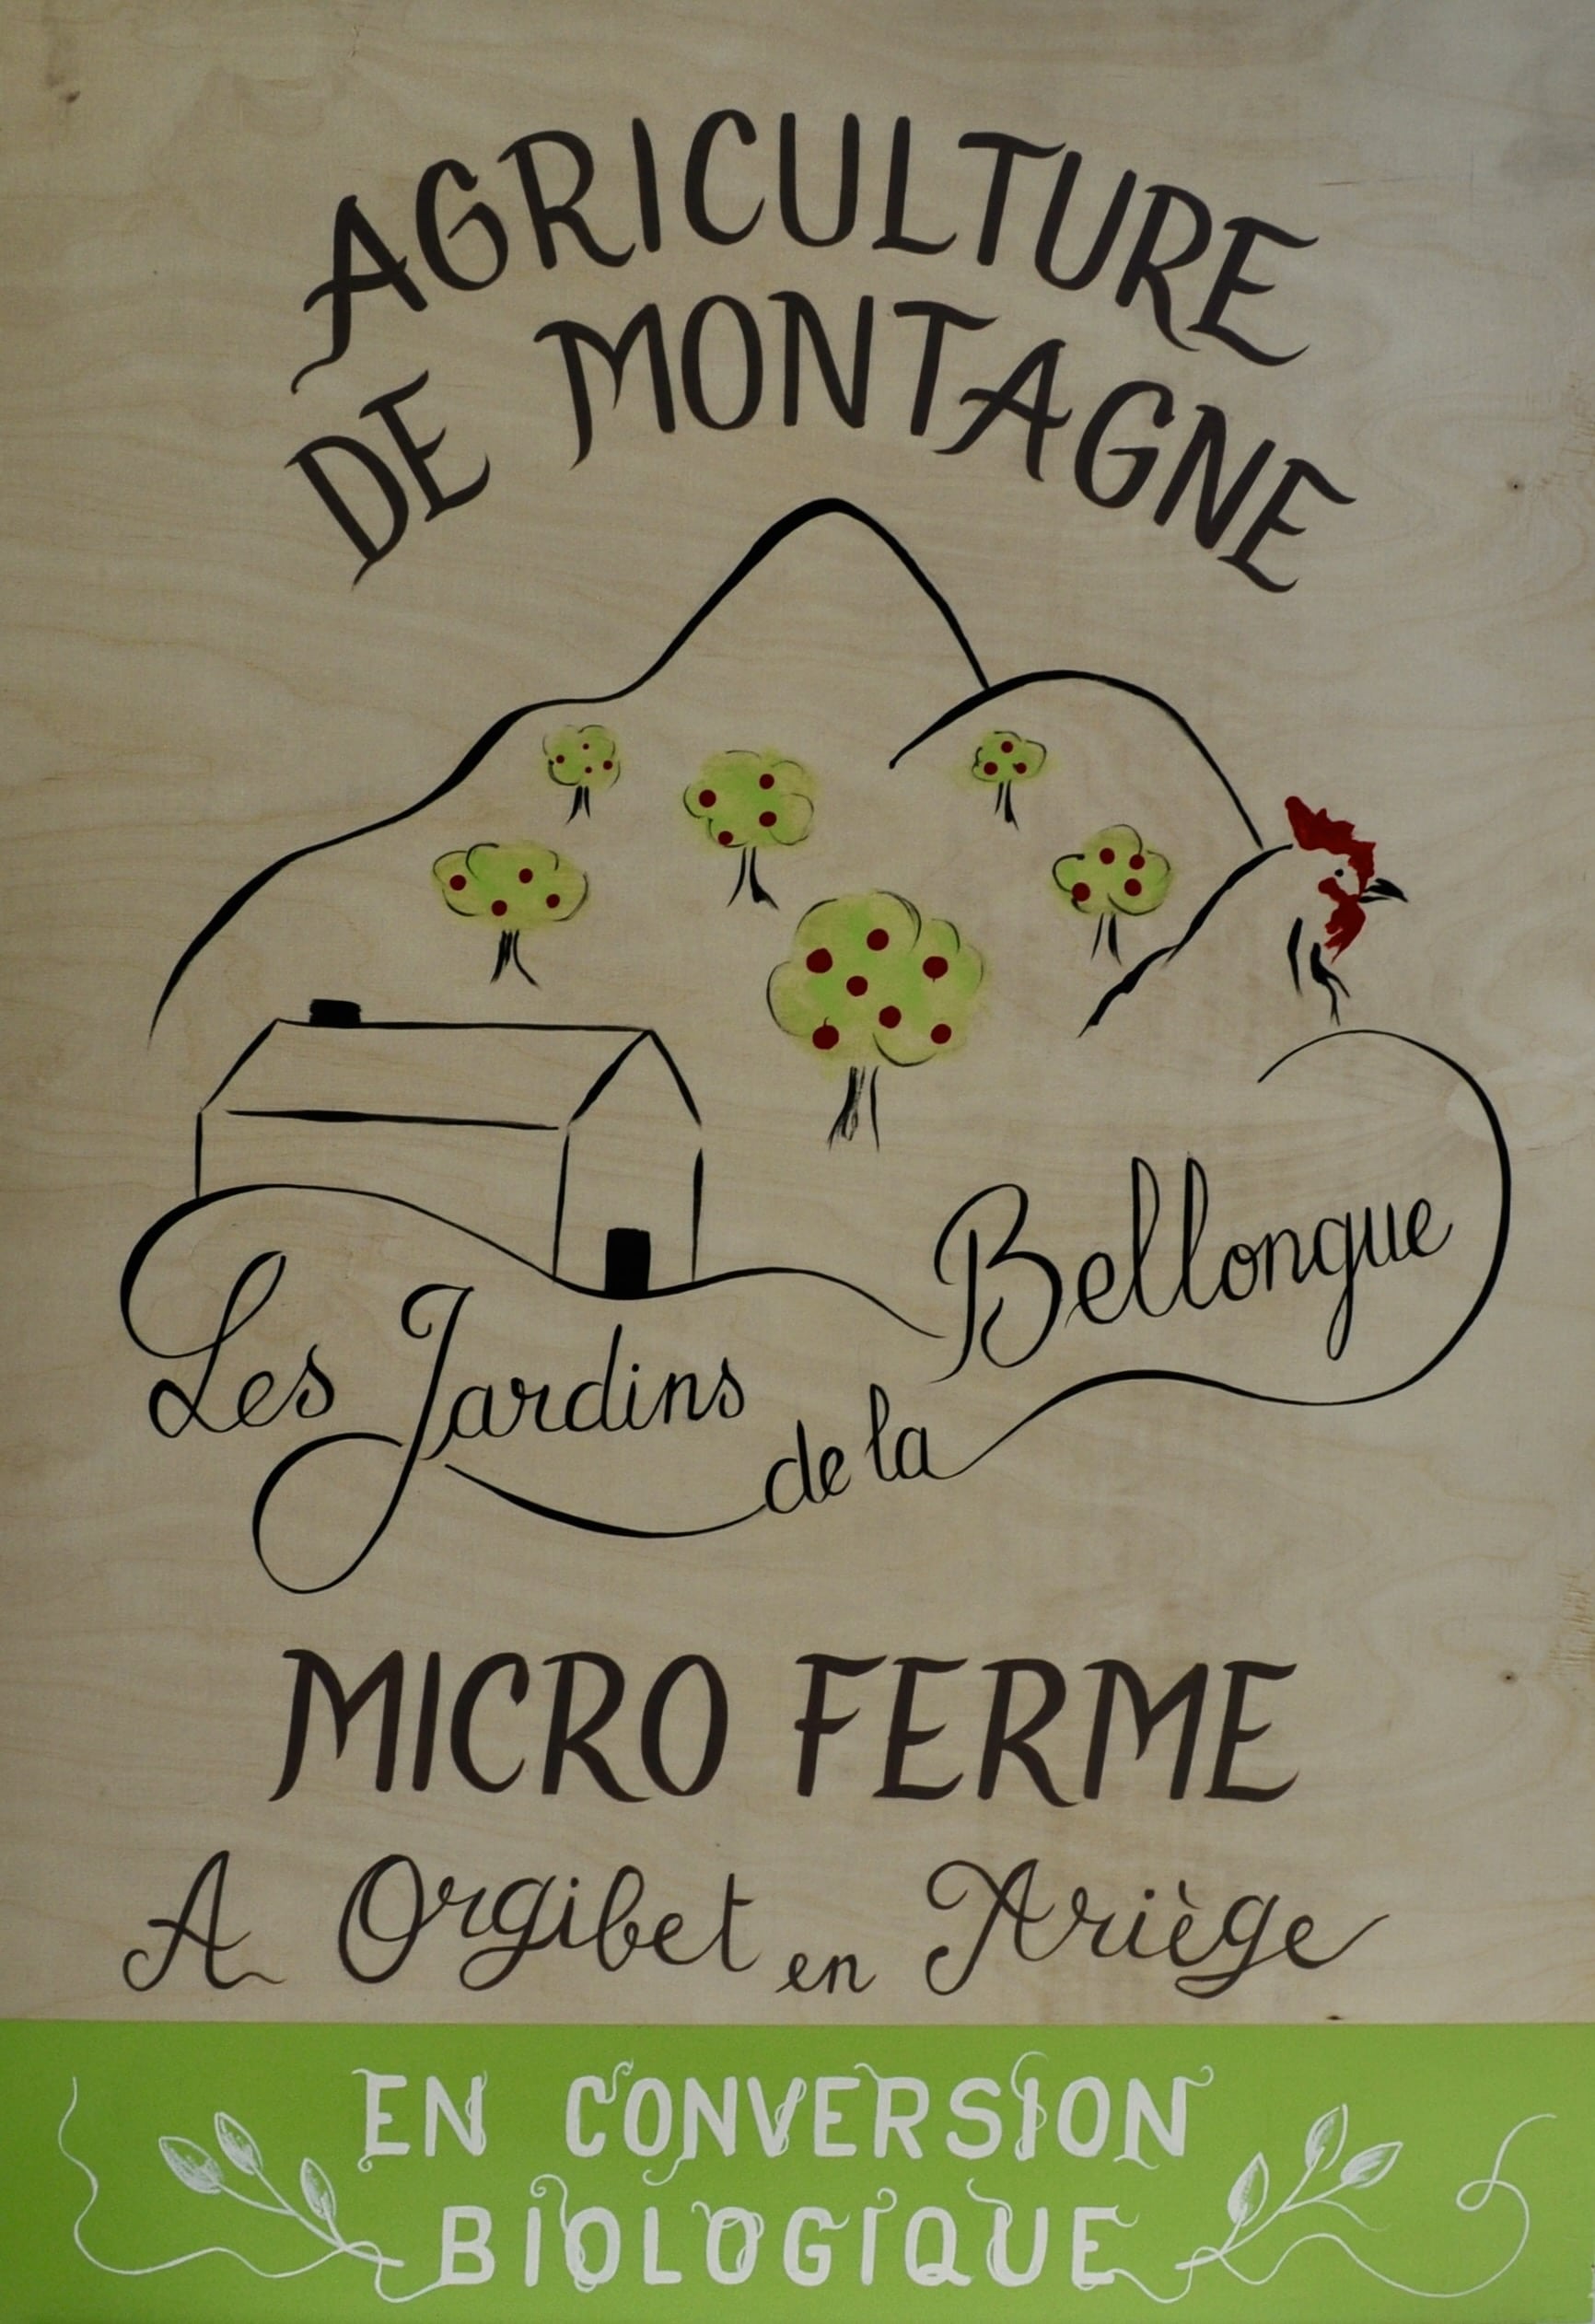 AGRICULTURE
DE MONTAGNE
Les Jardins
de la
Bellongue
MICRO FERME
A Orgibet en Ariège
EN CONVERSION
BIOLOGIQUE